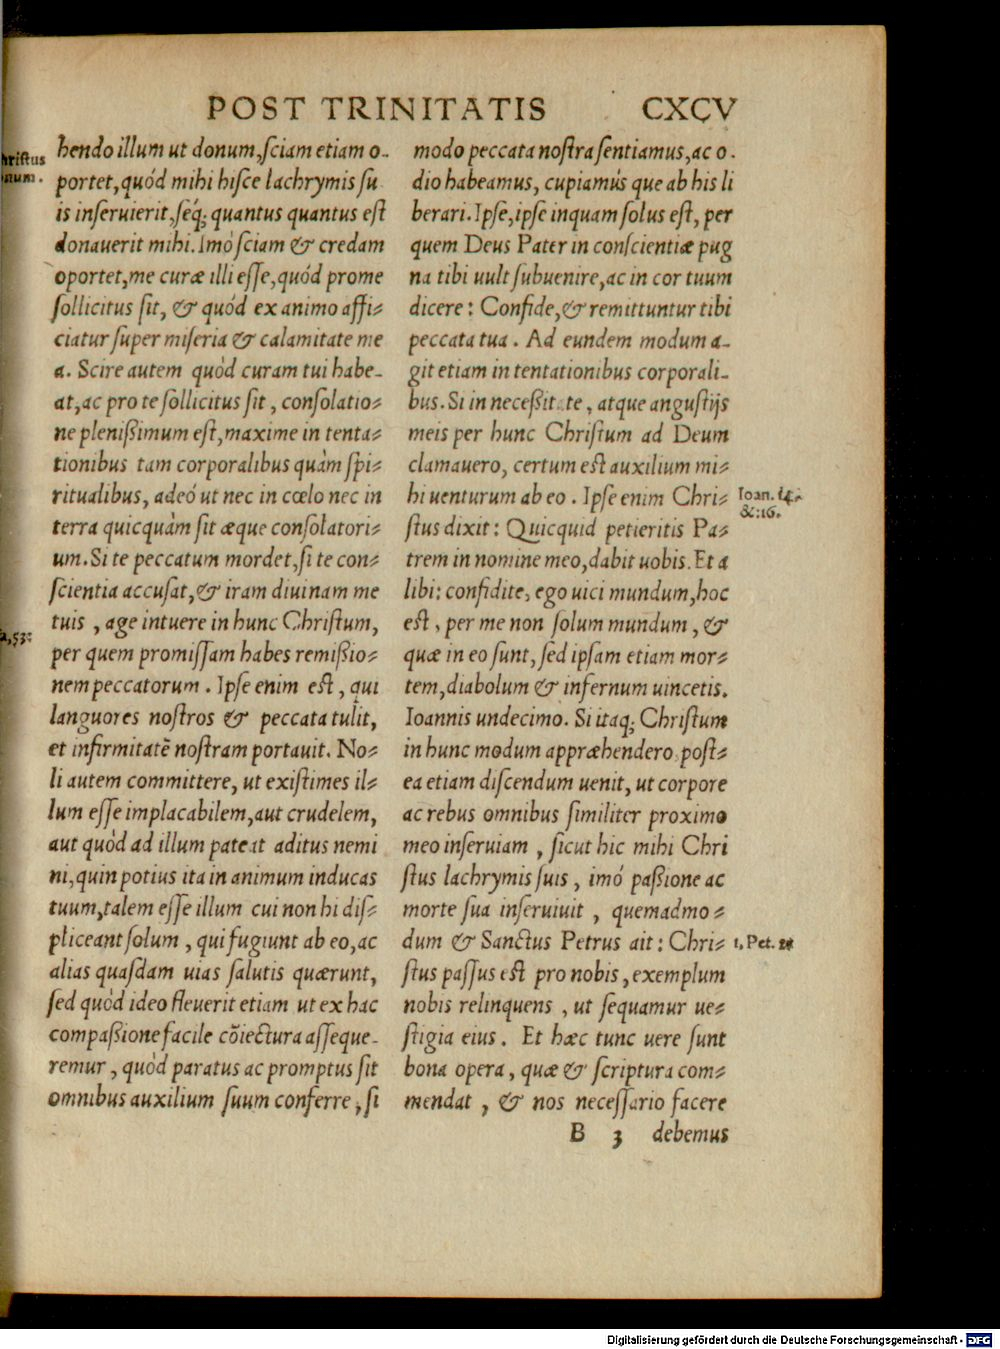 POST TRINITATIS CXCV
hristus
num.
hendo illum ut donum, sciam etiam o-
portet, quód mihi hisce lachrymis su
is inseruierit, seq́; quantus quantus est
donauerit mihi. Imò sciam & credam
oportet, me curæ illi esse, quód prome
sollicitus sit, & quód ex animo affi-
ciatur super miseria & calamitate me
a. Scire autem quòd curam tui habe-
at, ac pro te sollicitus sit, consolatio-
ne plenißimum est, maxime in tenta-
tionibus tam corporalibus quàm spi-
ritualibus, adeó ut nec in cœlo nec in
terra quicquàm sit æque consolatori-
um. Si te peccatum mordet, si te con-
scientia accusat, & iram diuinam me
tuis, age intuere in hunc Christum,
a, 53:
per quem promissam habes remißio-
nem peccatorum. Ipse enim est, qui
languores nostros & peccata tulit,
et infirmitatē nostram portauit. No-
li autem committere, ut existimes il-
lum esse implacabilem, aut crudelem,
aut quòd ad illum pateat aditus nemi
ni, quin potius ita in animum inducas
tuum, talem esse illum cui non hi dis-
pliceant solum, qui fugiunt ab eo, ac
alias quasdam uias salutis quærunt,
sed quòd ideo fleuerit etiam ut ex hac
compaßione facile cōiectura asseque-
remur, quòd paratus ac promptus sit
omnibus auxilium suum conferre, si
modo peccata nostra sentiamus, ac o-
dio habeamus, cupiamús que ab his li
berari. Ipse, ipse inquam solus est, per
quem Deus Pater in conscientiæ pug
na tibi uult subuenire, ac in cor tuum
dicere: Confide, & remittuntur tibi
peccata tua. Ad eundem modum a-
git etiam in tentationibus corporali-
bus. Si in neceßitate, atque angustijs
meis per hunc Christum ad Deum
clamauero, certum est auxilium mi-
hi uenturum ab eo. Ipse enim Chri-
Ioan. 14.
&: 16.
stus dixit: Quicquid petieritis Pa-
trem in nomine meo, dabit uobis. Et a
libi: confidite, ego uici mundum, hoc
est, per me non solum mundum, &
quæ in eo sunt, sed ipsam etiam mor-
tem, diabolum & infernum uincetis.
Ioannis undecimo. Si itaq; Christum
in hunc modum appræhendero post-
ea etiam discendum uenit, ut corpore
ac rebus omnibus similiter proximo
meo inseruiam, sicut hic mihi Chri
stus lachrymis suis, imó paßione ac
morte sua inseruiuit, quemadmo-
dum & Sanctus Petrus ait: Chri-
1, Pet.
stus passus est pro nobis, exemplum
nobis relinquens, ut sequamur ue-
stigia eius. Et hæc tunc uere sunt
bona opera, quæ & scriptura com-
mendat, & nos necessario facere
B 3 debemus
Digitalisierung gefördert durch die Deutsche Forschungsgemeinschaft - DFG